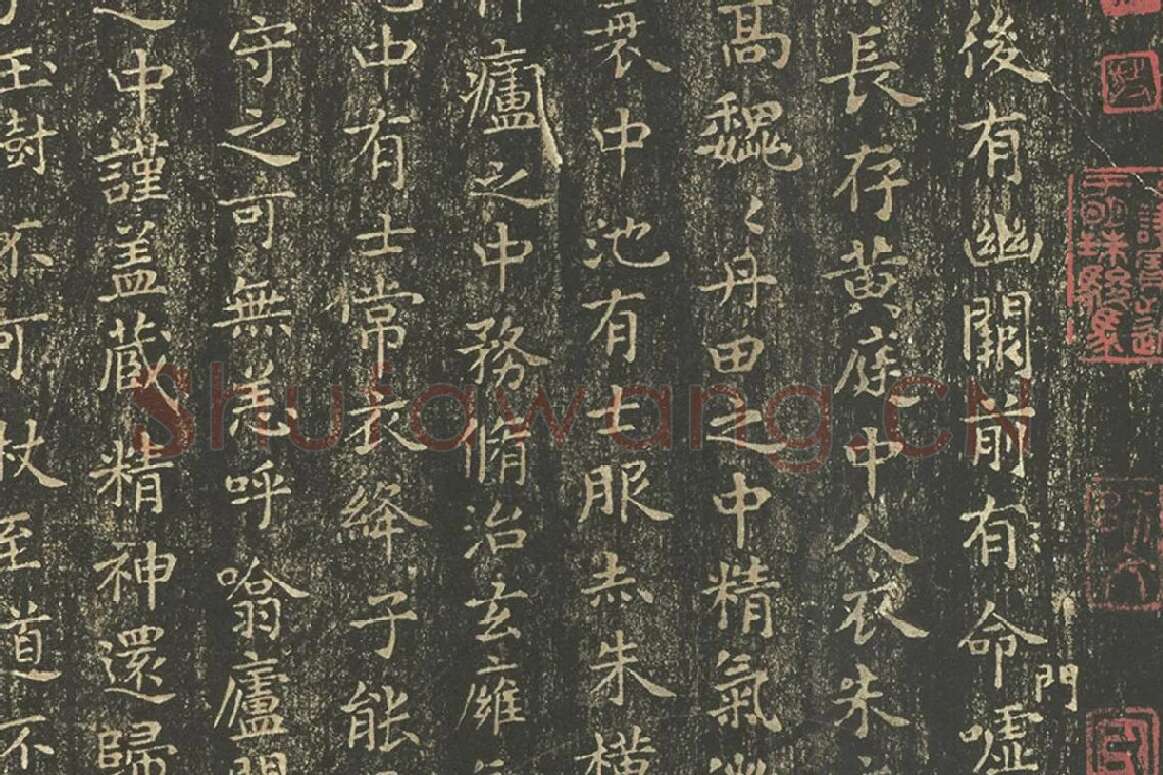 後有幽闕前有命門噓
長存黃庭中人衣朱
高巍〻丹田之中精氣
裹中池有士服赤朱橫
癰之中務脩治玄廱
中有士常衣絳子能
守之可無恙呼噏廬間
之中謹盖藏精神還歸
玉樹不可杖至道不
Shufawang.CN